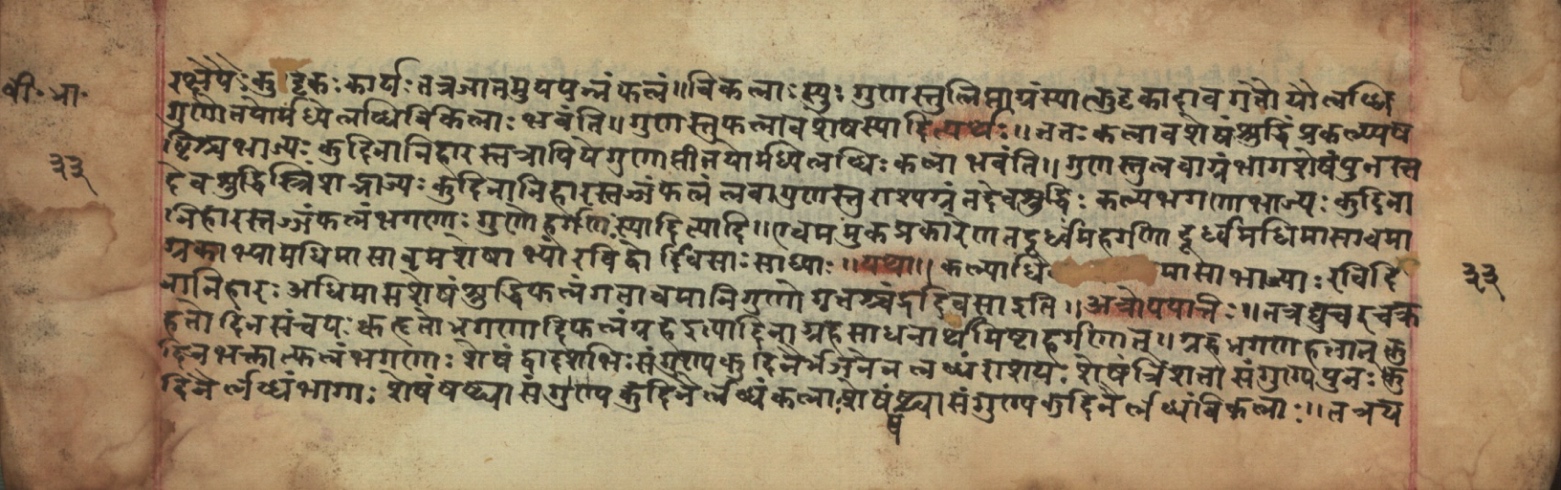 बी॰ भा॰
३३
रक्षेपः कु दृकः कार्यः तत्र जातमुपपन्नं फलं॥ विकलाः स्युः गुणस्तु लिप्ताग्रं स्यात्कुट्टकादावगतो यो लब्धि
गुणौ तयोर्मध्ये लब्धिर्विकलाः भवंति॥ गुणस्तु कलावशेषं स्यादित्यर्थः॥ ततः कलावशेषं शुद्धिं प्रकल्प्य ष
ष्टिश्च भाज्यः कुदिनानि हारस्तत्रापि ये गुणाप्ती तयोर्मध्ये लब्धिः कला भवंति॥ गुणस्तु लवाग्रं भागशेषं पुनस्त
देव शुद्धिस्त्रिंशद्भाज्यः कुदिनानि हारस्तज्जं फलं लवा गुणस्तु राश्यग्रं तदेव शुद्धिः कल्पभगणा भाज्यः कुदिना
नि हारस्तज्जं फलं भगणः गुणोहर्गणः स्यादित्यादि॥ एवममुक्तप्रकारेण तदूर्ध्वमहर्गणो दूर्ध्वमधिमासावमा
ग्रकाभ्यामधिमासावमशेषाभ्यां रवींद्वोर्दिवसाः साध्याः॥ यथा॥ कल्पाधि मासा भाज्याः रविदि
नानि हारः अधिमासशेषं शुद्धिः फलं गताधमासानि गुणो गतश्चांद्रदिवसा इति॥ अत्रोपपत्तिः॥ तत्र द्युचरचक्र
हतो दिनसंचयः क्वहृतो भगणादिफलं ग्रह इत्यादिना ग्रहसाधनार्थमिष्टाहर्गणेन॥ ग्रहभगणा हतान् कु
दिनभक्तात्फलं भगणाः शेषं द्वादशभिः संगुण्य कुदिनैर्भजनेन लब्धं राशयः शेषं त्रिंशता संगुण्य पुनः कु
दिनैर्लब्धं भागाः शेषं षष्ट्या संगुण्य कुदिनैर्लब्धं कलाः शेषं ष्ट्या संगुण्य कुदिनैर्लब्धं विकलाः॥ तत्र य
ष
३३